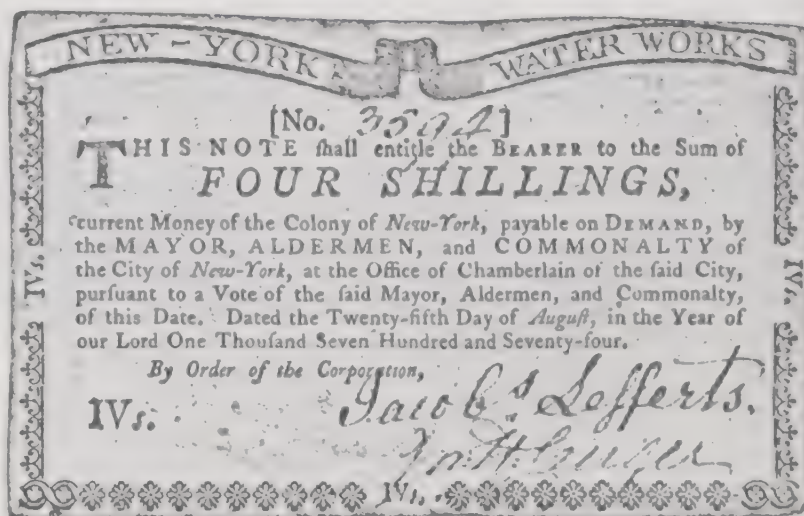 NEW-YORK WATER WORKS
[No. 3594]
THIS NOTE ſhall entitle the BEARER to the Sum of
FOUR SHILLINGS,
current Money of the Colony of New-York, payable on DEMAND, by
the MAYOR, ALDERMEN, and COMMONALTY of
the City of New-York, at the Office of Chamberlain of the ſaid City,
purſuant to a Vote of the ſaid Mayor, Aldermen, and Commonalty,
of this Date. Dated the Twenty-fifth Day of Auguſt, in the Year of
our Lord One Thouſand Seven Hundred and Seventy-four.
By Order of the Corporation,
IVs.
Jacobs Lefferts.
Cruger
IVs.
IVs.
IVs.